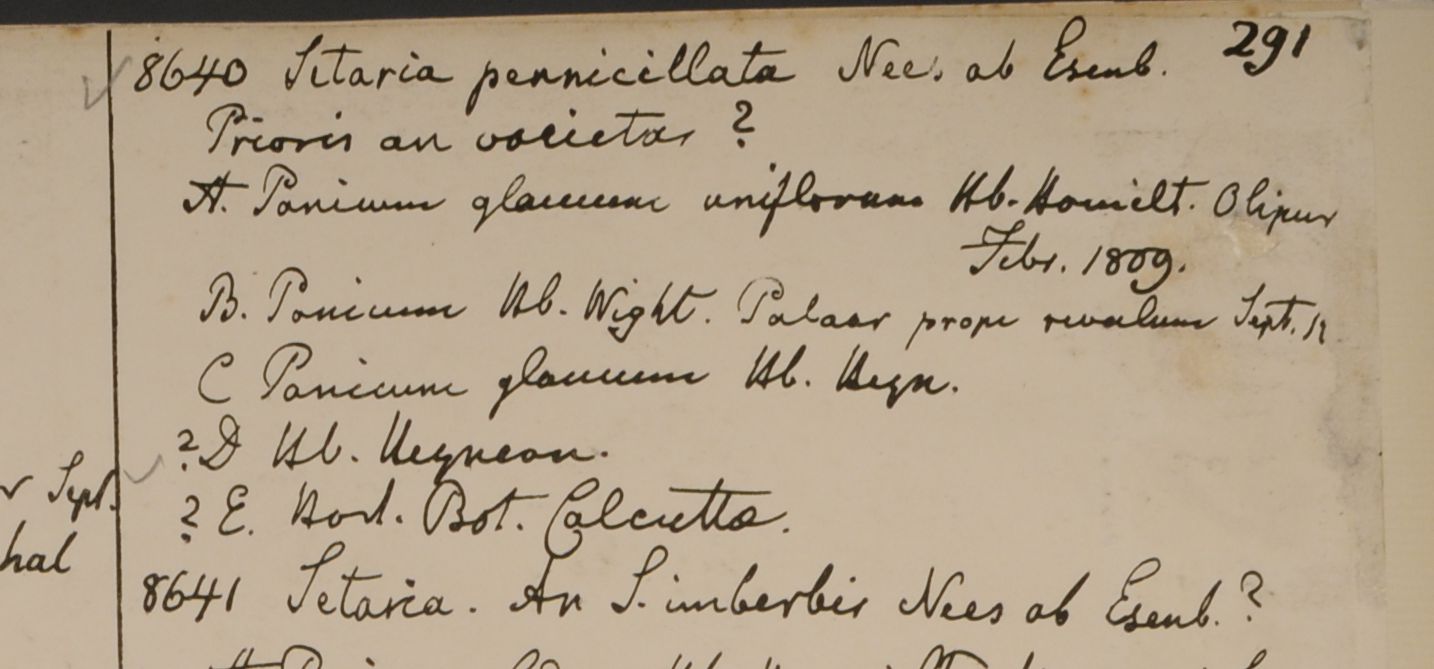 291
8640 Setaria pennicillata Nees. ab Esenb.
Prioris an varietas ?
A. Panicum glaucum uniflorum Hb. Hamilt. Olipur
Febr. 1809.
B. Panicum Hb. Wight. Palaar prope rivulum Sept. 12
C Panicum glaucum Hb. Heyn.
? D Hb. Heynean.
? E. Hort. Bot. Calcutta.
8641 Setaria. An S. imberbis Nees ab Esenb. ?
r Sept.
hal